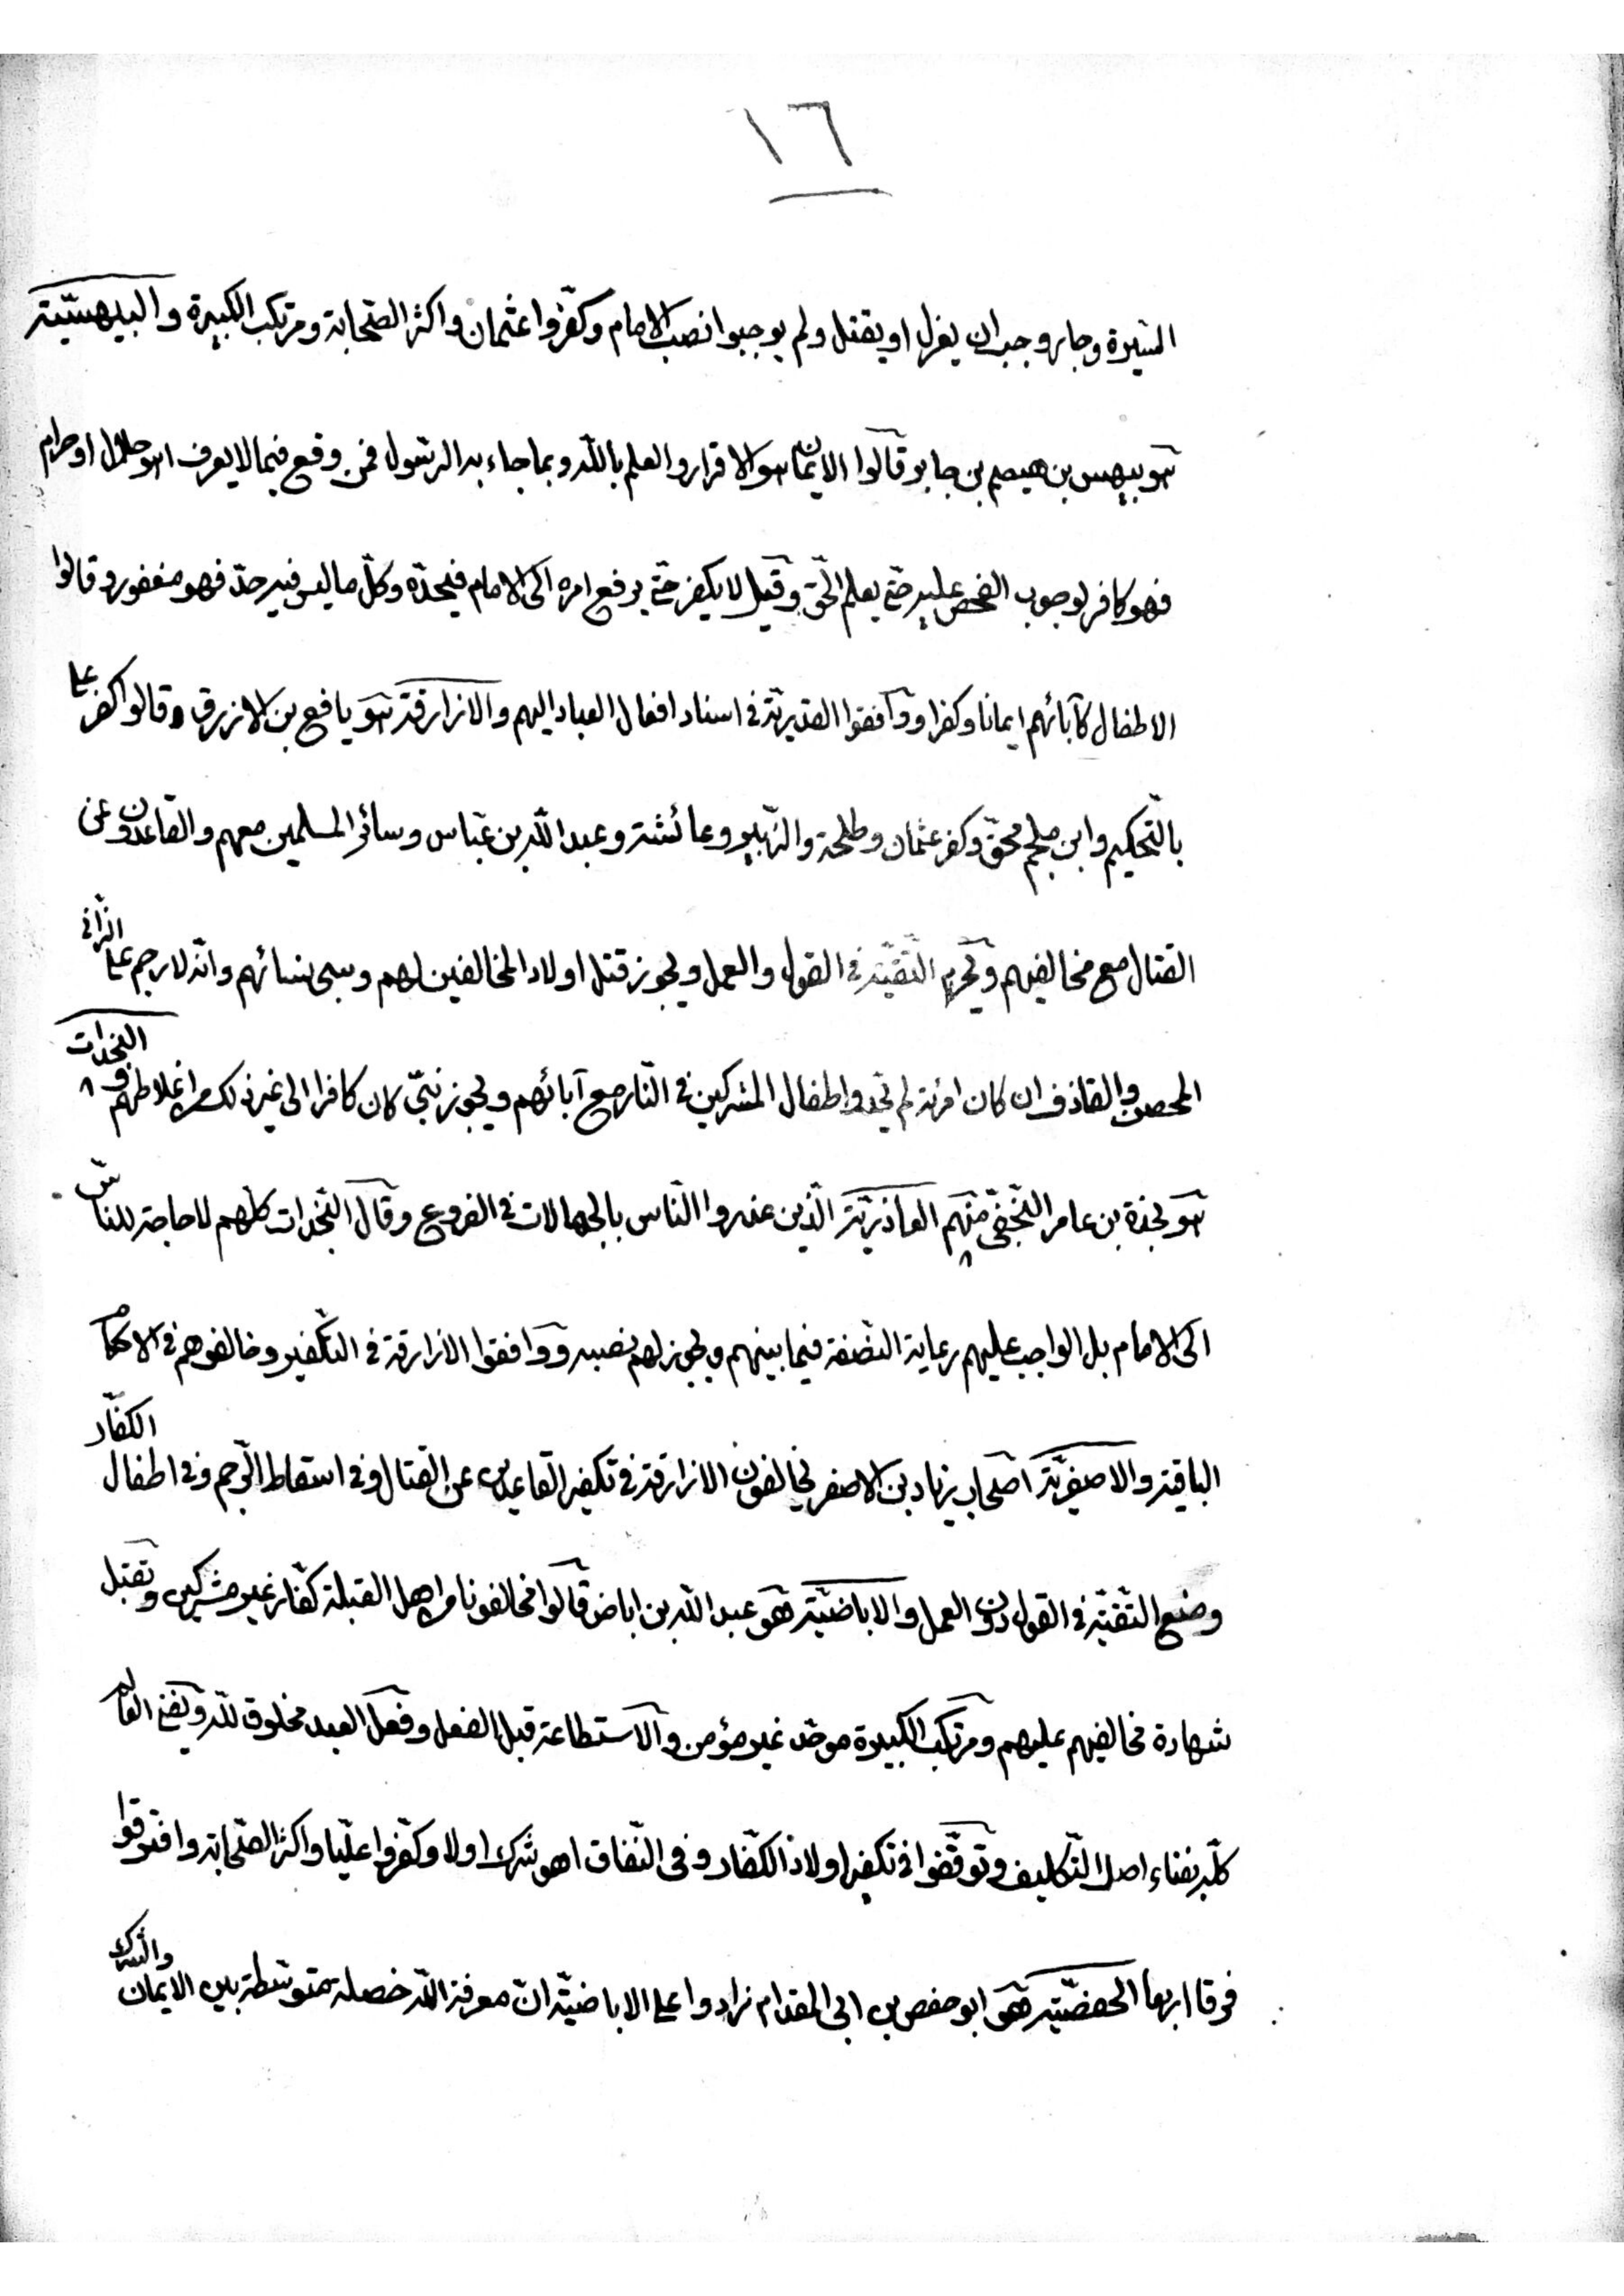 ١٦
السّيرة وجار وجب ان يعزل او يقتل ولم يوجبوا نصب الامام وكفّروا عثمان واكثر الصّحابة ومرتكب الكبيرة والبيهسيّة
هو بيهس بن هيصم بن جابر قالوا الايمان هو الاقرار والعلم بالله وبما جاء به الرّسول فمن وقع فيما لا يعرف اهو حلال او حرام
فهو كافر لوجوب الفحص عليه حتى يعلم الحق وقيل لا يكفر حتى يرفع امره الى الامام فيحدّه وكلّ ما ليس فيه حدّ فهو مغفور وقالوا
الاطفال كآبائهم ايمانا وكفرا ووافقوا القدريّة فى اسناد افعال العباد اليهم والازارقة هو يافع بن الازرق وقالوا كفر على
بالتّحكيم وابن ملجم محقّ وكفر عثمان وطلحة والزّبير وعائشة وعبد الله بن عبّاس وسائر المسلمين معهم والقاعدون عن
القتال مع مخالفيهم وتحرم التّقيّة فى القول والعمل ويجوز قتل اولاد المخالفين لهم وسبى نسائهم وانّه لا رجم على الزّانى
المحصن والقاذف ان كان امرئة لم تحد واطفال المشركين فى النّار مع آبائهم ويجوز نبىّ كان كافرا الى غير ذلك من اغلاطهم و النّجدات
هو نجدة بن عامر النّخفى منهم العاذريّة الّذين عذروا النّاس بالجهالات فى الفروع وقال النّجدات كلّهم لا حاجة للنّاس
الى الامام بل الواجب عليهم رعاية النّصفة فيما بينهم ويجوز لهم نصبه ووافقوا الازارقة فى التّكفير وخالفوهم فى الاحكام
الباقية والاصفريّة اصحاب زياد بن الاصفر يخالفون الازارقة فى تكفير القاعدين عن القتال وفى اسقاط الرّجم وفى اطفال الكفّار
ومنع التّقيّة فى القول دون العمل والاباضيّة هو عبد الله بن اباض قالوا مخالفونا من اهل القبلة كفّار غير مشركين وتقبل
شهادة مخالفيهم عليهم ومرتكب الكبيرة موحّد غير مؤمن والاستطاعة قبل الفعل وفعل العبد مخلوق لله ويفنى العالم
كلّه بفناء اهل التّكليف وتوقّفوا فى تكفير اولاد الكفّار وفى النّفاق اهو شرك اولا وكفّروا عليّا واكثر الصّحابة وافترقوا
فرقا اربعا الحفصيّة هو ابو حفص بن ابى المقدام زادوا على الاباضيّة انّ معرفة الله خصلة متوسّطة بين الايمان والشّرك